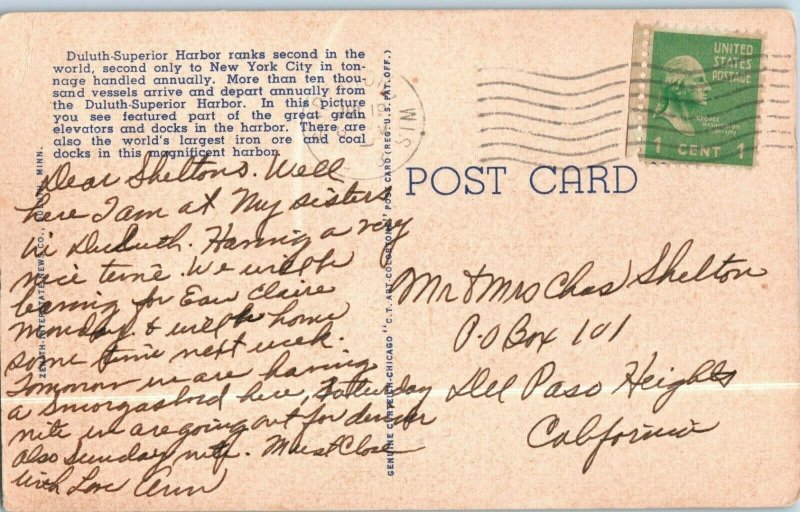 Duluth-Superior Harbor ranks second in the
world, second only to New York City in ton-
nage handled annually. More than ten thou-
sand vessels arrive and depart annually from
the Duluth-Superior Harbor. In this picture
you see featured part of the great grain
elevators and docks in the harbor. There are
also the world's largest iron ore and coal
docks in this magnificent harbor.
Dear Sheltons. Well
here I am at My sisters
in Duluth. Having a very
nice time. We will be
leaving for Eau Claire
Monday & will be home
some time next week.
Tomorrow we are having
a Smorgasbord here, Satturday
nite we are going out for dinner
also Sunday nite. Must Close
with Love Ann
ZENITH-INTERSTATE NEWS CO., DULUTH, MINN.
GENUINE CURTEICH-CHICAGO "C.T. ART-COLORTONE" POST CARD (REG. U.S. PAT. OFF.)
WIS
UNITED
STATES
POSTAGE
GEORGE
WASHINGTON
1 CENT 1
POST CARD
Mr & Mrs Chas Shelton
P.O Box 101
Del Paso Heights
California